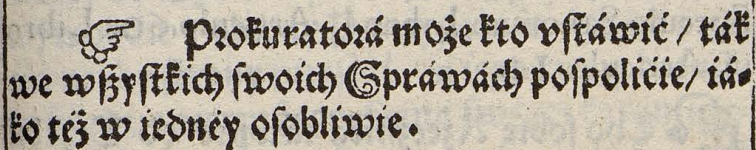 ☞ Prokuratorá może kto vſtáwić / ták
we wſzyſtkich ſwoich Spráwách poſpolićie / iá⸗
ko téż w iednéy oſobliwie.